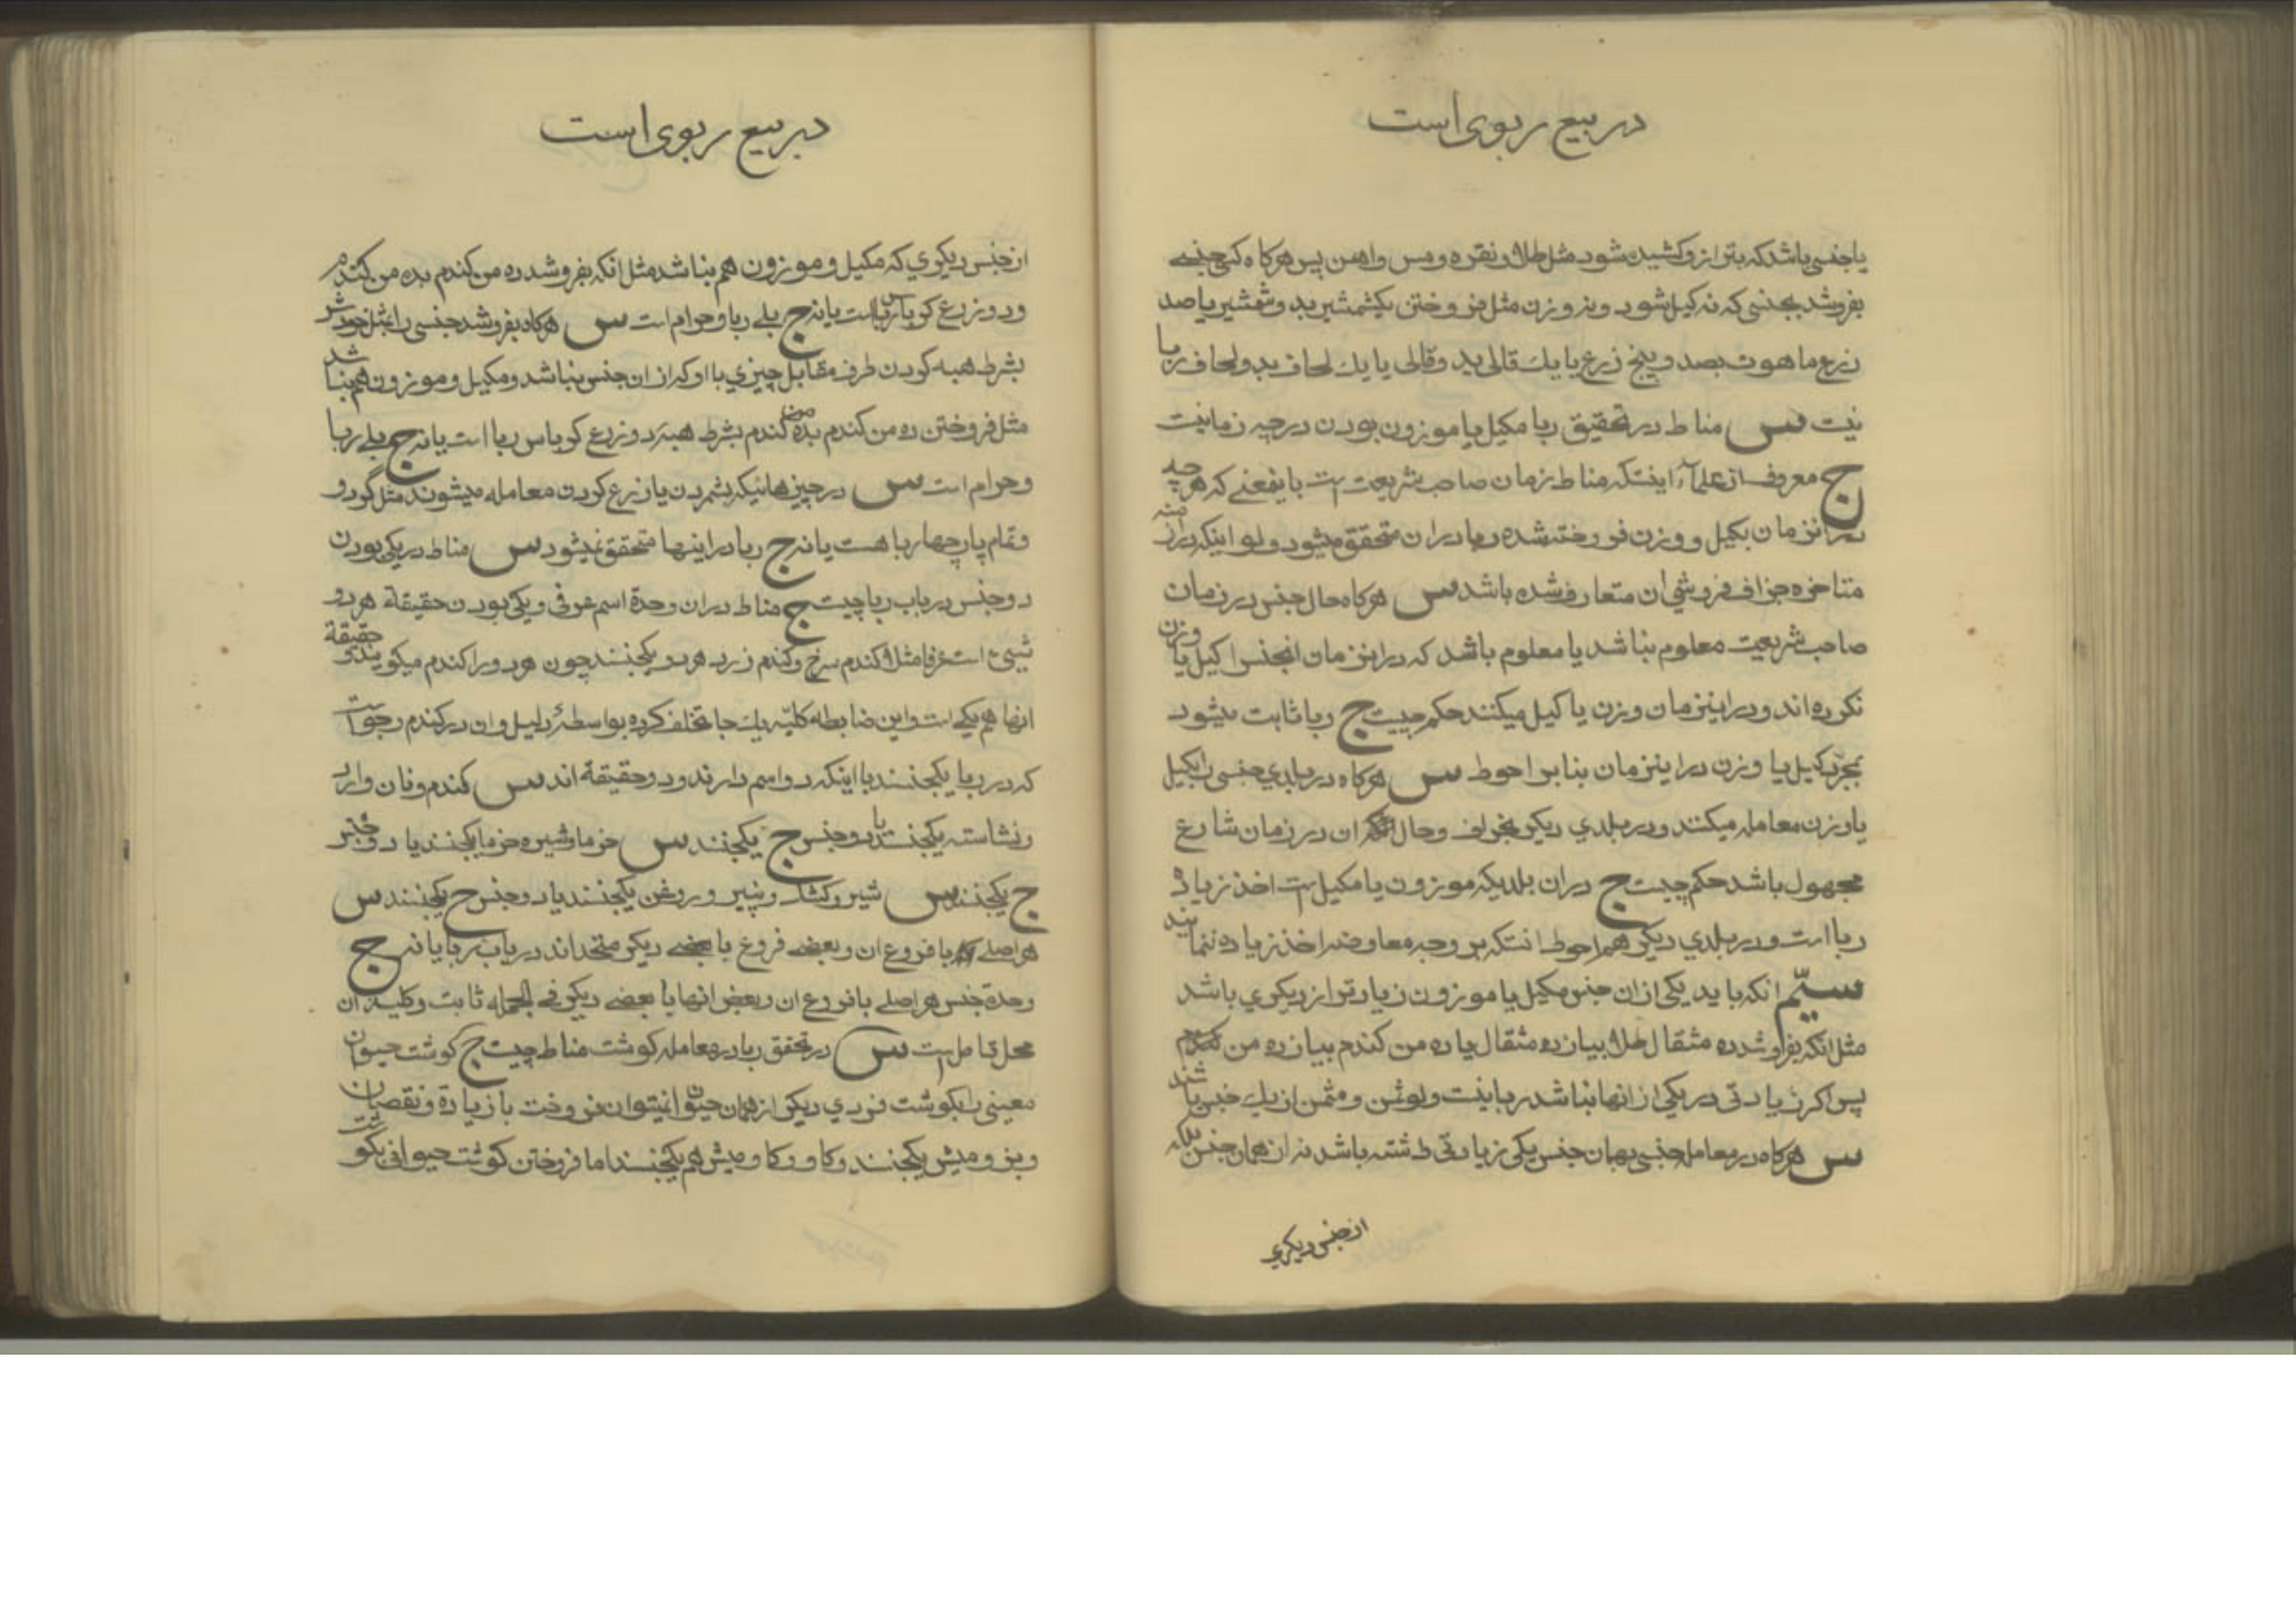 در بیع ربوی است
یا جنسی باشد که بترازو کشیده شود مثل طلا و نقره و مس و اهن پس هرکاه کسی جنسی
بفروشد بجنسی که نه کیل شود و نه وزن مثل فروختن یکشمشیر بدو شمشیر یا صد
زرع ماهوت بصد و پنج زرع یا یك قالی بدو قالی یا یك لحاف بدو لحاف ربا
نیست س مناط در تحقیق ربا مکیل یا موزون بودن در چه زمانیست
ج معروف از علمآء اینستکه مناط زمان صاحب شریعت است باینمعنی که هر چه
در انزمان بکیل و وزن فروخته شده ربا در ان متحقق میشود و لو اینکه در ازمنه
متاخره جزاف فروشی ان متعارف شده باشد س هرکاه حال جنس در زمان
صاحب شریعت معلوم نباشد یا معلوم باشد که در انزمان انجنس را کیل یا وزن
نکرده اند و در اینزمان وزن یا کیل میکنند حکم چیست ج ربا ثابت میشود
بمجرّد کیل یا وزن در اینزمان بنابر احوط س هرکاه در بلدی جنسی را بکیل
یا وزن معامله میکنند و در بلدی دیکر بجزاف و حال ان در زمان شارع
مجهول باشد حکم چیست ج در ان بلدیکه موزون یا مکیل است اخذ زیاده
ربا است و در بلدی دیکر هم احوط انستکه بر وجه معاوضه اخذ زیاده ننمایند
سیّم انکه باید یکی از ان جنس مکیل یا موزون زیادتر از دیکری باشد
مثل انکه بفروشد ده مثقال طلا بیازده مثقال یا ده من کندم بیازده من کندم
پس اکر زیادتی در یکی از انها نباشد ربا نیست و لو ثمن و مثمن از یك جنس باشند
س هرکاه در معامله جنسی بهمان جنس یکی زیادتی داشته باشد نه از همان جنس بلکه
از جنس دیکری
در بیع ربوی است
از جنس دیکری که مکیل و موزون هم نباشد مثل انکه بفروشد ده من کندم بده من کندم
و دو زرع کرباس ربا است یا نه ج بلی ربا و حرام است س هرکاه بفروشد جنسی را بمثل خودش
بشرط هبه کردن طرف مقابل چیزی باو که از ان جنس نباشد و مکیل و موزون هم نباشد
مثل فروختن ده من کندم بده من کندم بشرط هبهٔ دو زرع کرباس ربا است یا نه ج بلی ربا
و حرام است س در چیزهائیکه بشمردن یا زرع کردن معامله میشوند مثل گردو
و تمام پارچها ربا هست یا نه ج ربا در اینها متحقق نمیشود س مناط در یکی بودن
دو جنس در باب ربا چیست ج مناط در ان وحدة اسم عرفی و یکی بودن حقیقة هر دو
شیئ است عرفا مثلا کندم سرخ و کندم زرد هر دو یکجنسند چون هر دو را کندم میکویند و حقیقة
انها هم یکی است و این ضابطه کلیّه یك جا تخلف کرده بواسطهٔ دلیل و ان در کندم و جو است
که در ربا یکجنسند با اینکه دو اسم دارند و دو حقیقة اند س کندم و نان و ارد
و نشاسته یکجنسند یا دو جنس ج یکجنسند س خرما و شیره خرما یکجنسند یا دو جنس
ج یکجنسند س شیر و کشك و پنیر و روغن یکجنسند یا دو جنس ج یکجنسند س
هر اصلی با فروع ان و بعضی فروع با بعضی دیکر متحداند در باب ربا یا نه ج
وحدة جنس هر اصلی با فروع ان و بعض انها با بعضی دیکر فی الجمله ثابت و کلیت ان
محل تامل است س در تحقق ربا در معامله کوشت مناط چیست ج کوشت حیوان
معینی را بکوشت فردی دیکر از همان حیوان نمیتوان فروخت با زیاده و نقصان
و بز و میش یکجنسند و کاو و کاومیش هم یکجنسند اما فروختن کوشت حیوانی بکوشت